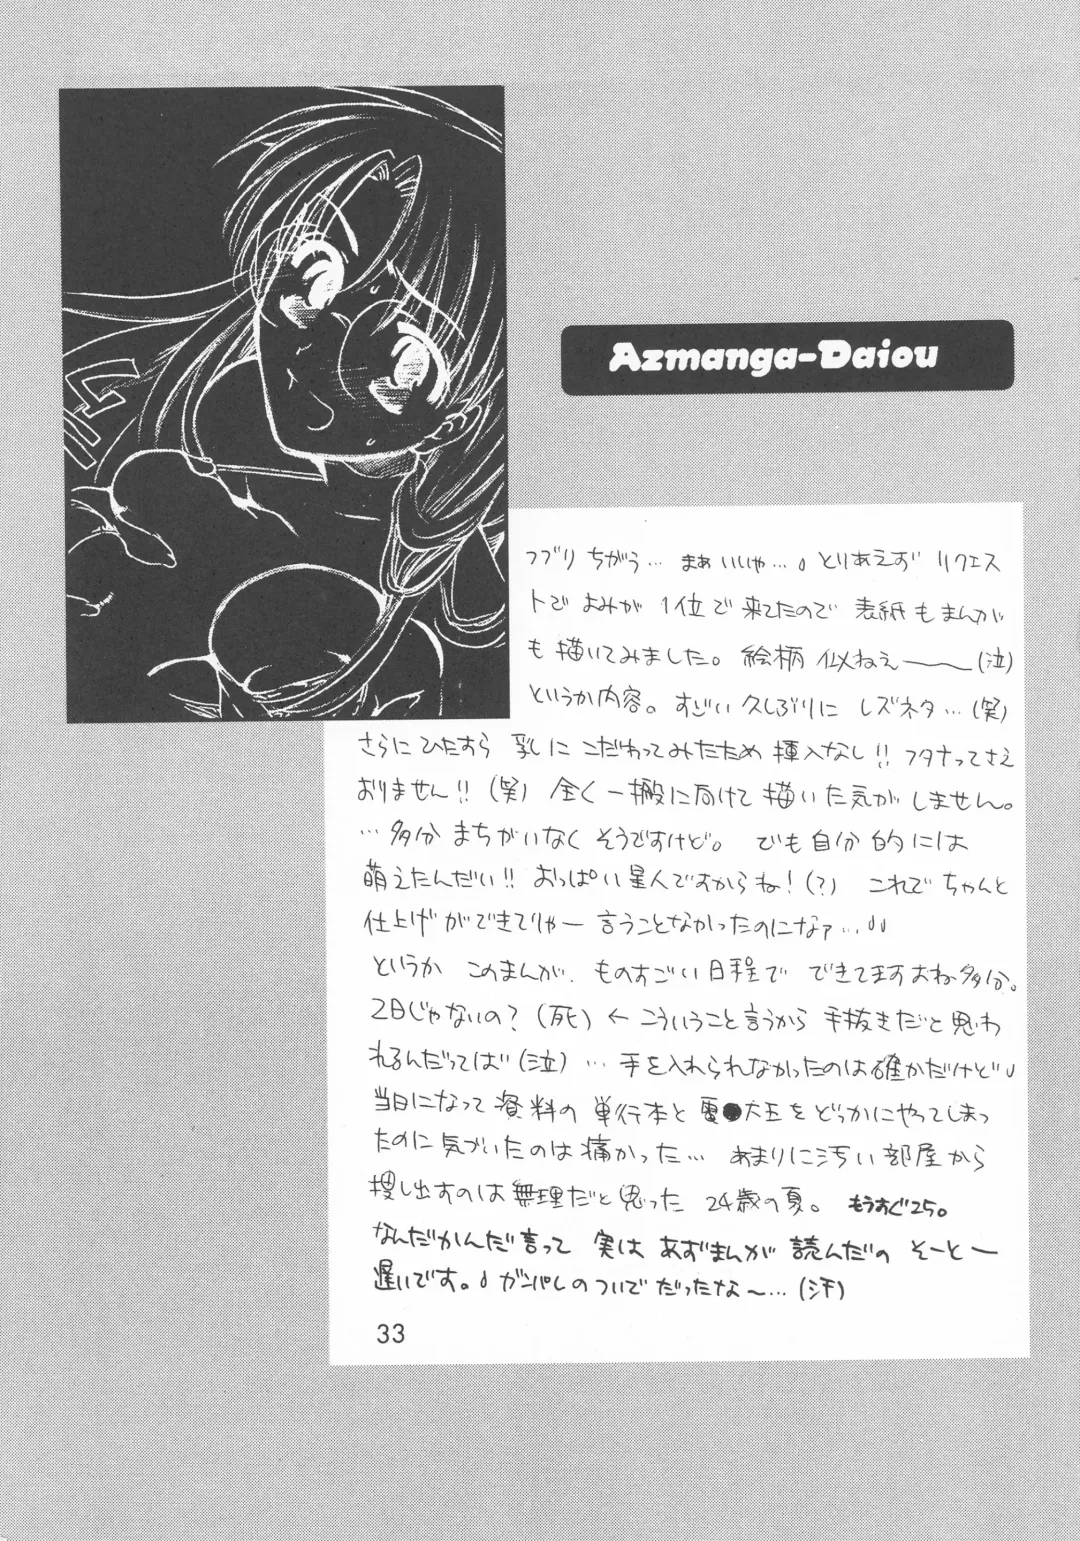 Azmanga-Daiou
つづり ちがう… まぁいいや… とりあえず リクエス
トで よみが 1位で来てたので 表紙もまんが
も描いてみました。絵柄 似ねえ——(泣)
というか内容。すごい 久しぶりに レズネタ…(笑)
さらに ひたすら 乳に こだわってみたため 挿入なし!! フタナってさえ
おりません!! (笑) 全く一般に向けて描いた気がしません。
…多分 まちがいなく そうですけど。 でも自分的には
萌えたんだい!! おっぱい星人ですからね!(?) これで ちゃんと
仕上げができてりゃー 言うことなかったのになァ…
というか このまんが、ものすごい日程で できてますよね多分。
2日じゃないの?(死) ← こういうこと言うから 手抜きだと思わ
れるんだってば(泣) … 手を入れられなかったのは確かだけど
当日になって資料の 単行本と 電●大王を どっかにやってしまっ
たのに気づいたのは痛かった… あまりに汚い部屋から
捜し出すのは無理だと思った 24歳の夏。 もうすぐ25。
なんだかんだ言って 実は あずまんが 読んだの そーとー
遅いです。 ガンパレのついでだったな〜…(汗)
33